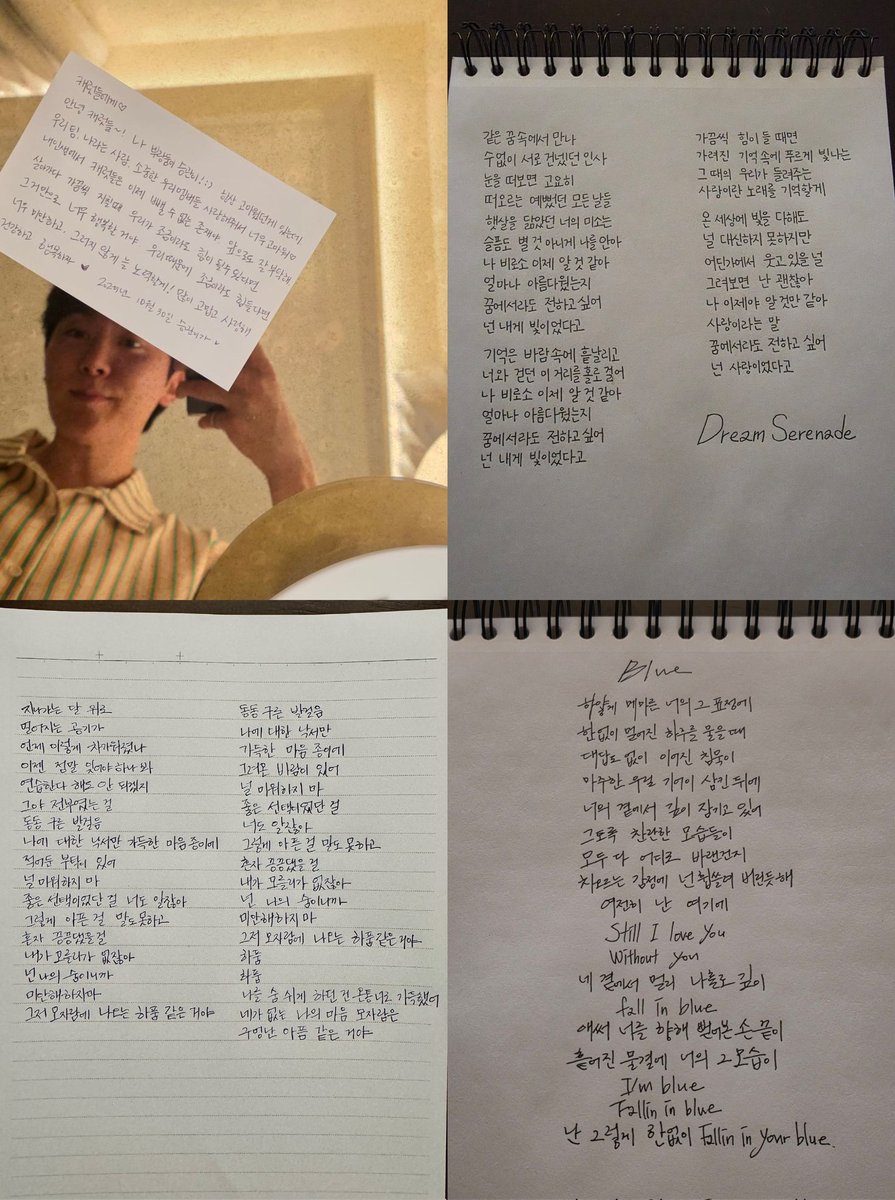 캐럿들에게♡
안녕 캐럿들~! 나 뿌랑둥이 승관이!:) 항상 고마웠던게 있는데
우리 팀! 나라는 사람 소중한 우리멤버들 사랑해줘서 너무 고마워♡
내인생에서 캐럿들은 이제 뺄 수 없는 존재야 앞으로도 잘 부탁해
살아가다 가끔씩 지칠때 우리가 조금이라도 힘이 될수 있다면
그거만으로 너무 행복한 거야 우리때문에 조금이라도 힘들다면
너무 미안하고. 그러지 않게 늘 노력할게! 많이 고맙고 사랑해
건강하고 행복하자 ♥
10월 30일 승관이가
같은 꿈속에서 만나
수없이 서로 건넸던 인사
눈을 떠보면 고요히
떠오르는 예뻤던 모든 날들
햇살을 닮았던 너의 미소는
슬픔도 별 것 아니게 나를 안아
나 비로소 이제 알 것 같아
얼마나 아름다웠는지
꿈에서라도 전하고 싶어
넌 내게 빛이었다고
기억은 바람 속에 흩날리고
너와 걷던 이 거리를 홀로 걸어
나 비로소 이제 알 것 같아
얼마나 아름다웠는지
꿈에서라도 전하고 싶어
넌 내게 빛이었다고
가끔씩 힘이 들 때면
가려진 기억 속에 푸르게 빛나는
그 때의 우리가 들려주는
사랑이란 노래를 기억할게
온 세상에 빛을 다해도
널 대신하지 못하지만
어딘가에서 웃고 있을 널
그려보면 난 괜찮아
나 이제야 알 것만 같아
사랑이라는 말
꿈에서라도 전하고 싶어
넌 사랑이었다고
Dream Serenade
지나가는 달 위로
멀어지는 공기가
언제 이렇게 차가워졌나
이젠 정말 잊어야 하나 봐
연습한다 해도 안 되겠지
그야 전부였는 걸
동동 구른 발걸음
나에 대한 낙서만 가득한 마음 종이에
적어둔 부탁이 있어
널 미워하지 마
좋은 선택이었단 걸 너도 알잖아
그렇게 아픈 걸 말도 못하고
혼자 끙끙댔을 걸
내가 모를리가 없잖아
넌 나의 숨이니까
미안해하지마
그저 모자람에 나오는 하품 같은 거야
동동 구른 발걸음
나에 대한 낙서만
가득한 마음 종이에
그려온 바람이 있어
널 미워하지 마
좋은 선택이었단 걸
너도 알잖아
그렇게 아픈 걸 말도 못하고
혼자 끙끙댔을 걸
내가 모를리가 없잖아
넌 나의 숨이니까
미안해하지 마
그저 모자람에 나오는 하품 같은 거야
하품
하품
나를 숨 쉬게 하던 건 온통 너로 가득했어
네가 없는 나의 마음 모자람은
구멍난 아픔 같은 거야
Blue
하얗게 메마른 너의 그 표정에
한없이 멀어진 하루를 물을 때
대답도 없이 이어진 침묵이
마주한 우릴 기어이 삼킨 뒤에
너의 곁에서 깊이 잠기고 있어
그토록 찬란한 모습들이
모두 다 어디로 바랜건지
차오르는 감정에 넌 휩쓸려 버린듯 해
여전히 난 여기에
Still I love you
Without you
네 곁에서 멀리 나홀로 깊이
fall in blue
애써 너를 향해 뻗어본 손 끝이
흩어진 물결에 너의 그 모습이
I'm blue
Fallin in blue
난 그렇게 한없이 Fallin in your blue.